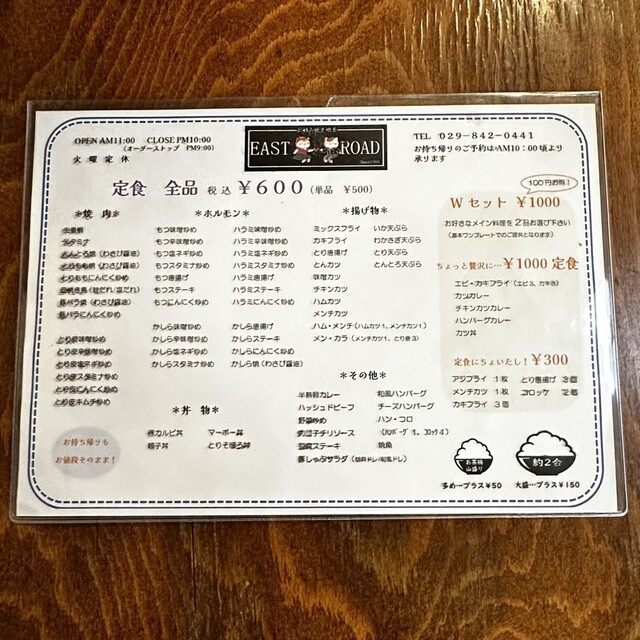 OPEN AM11:00 CLOSE PM10:00
(オーダーストップ PM9:00)
火曜定休
EAST ROAD
TEL 029-842-0441
お持ち帰りのご予約はAM10:00頃より
承ります
定食 全品 税込 ¥600 (単品 ¥500)
*焼 肉*
スタミナ
とんとろ焼 (わさび醤油)
とりもも焼 (わさび醤油)
とりももにんにく炒め
豚バラ焼 (わさび醤油)
豚バラにんにく炒め
とり皮味噌炒め
とり皮辛味噌炒め
とり皮塩ネギ炒め
とり皮スタミナ炒め
とり皮にんにく炒め
とり皮キムチ炒め
*ホルモン*
もつ味噌炒め
もつ辛味噌炒め
もつ塩ネギ炒め
もつスタミナ炒め
もつ唐揚げ
もつステーキ
もつにんにく炒め
ハラミ味噌炒め
ハラミ辛味噌炒め
ハラミ塩ネギ炒め
ハラミスタミナ炒め
ハラミ唐揚げ
ハラミステーキ
ハラミにんにく炒め
かしら味噌炒め
かしら辛味噌炒め
かしら塩ネギ炒め
かしらスタミナ炒め
かしら唐揚げ
かしらステーキ
かしらにんにく炒め
かしら焼 (わさび醤油)
*丼 物*
豚カルビ丼
親子丼
マーボー丼
とりそぼろ丼
*揚げ物*
ミックスフライ
カキフライ
とり唐揚げ
とんカツ
味噌カツ
チキンカツ
ハムカツ
メンチカツ
ハム・メンチ (ハムカツ1、メンチカツ1)
メン・カラ (メンチカツ1、とり唐3)
いか天ぷら
わかさぎ天ぷら
とり天ぷら
とんとろ天ぷら
*その他*
半熟卵カレー
ハッシュドビーフ
野菜炒め
肉団子チリソース
豆腐ステーキ
豚しゃぶサラダ (胡麻ドレ/和風ドレ)
和風ハンバーグ
チーズハンバーグ
ハン・コロ
(ハンバーグ1、コロッケ1)
焼魚
100円お得!
Wセット ¥1000
お好きなメイン料理を2品お選び下さい
(基本ワンプレートでのご提供となります)
ちょっと贅沢に… ¥1000定食
エビ・カキフライ (エビ3、カキ3)
カツカレー
チキンカツカレー
ハンバーグカレー
カツ丼
定食にちょいたし! ¥300
アジフライ 1枚 とり唐揚げ 3個
メンチカツ 1枚 コロッケ 2個
カキフライ 3個
お茶碗
山盛り
多め…プラス¥50
約2合
大盛…プラス¥150
お持ち帰りも
お値段そのまま!